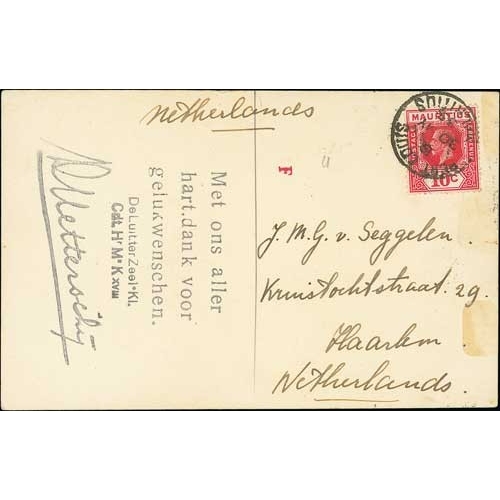 Netherlands
Met ons aller
hart.dank voor
gelukwenschen.
De Luitter Zee I-Kl.
Cdt. Hr Ms K XVIII
F
MAURITIUS
POSTAGE
REVENUE
10c
J. M. G. v. Seggelen.
Kruistochtstraat. 29.
Haarlem.
Netherlands.